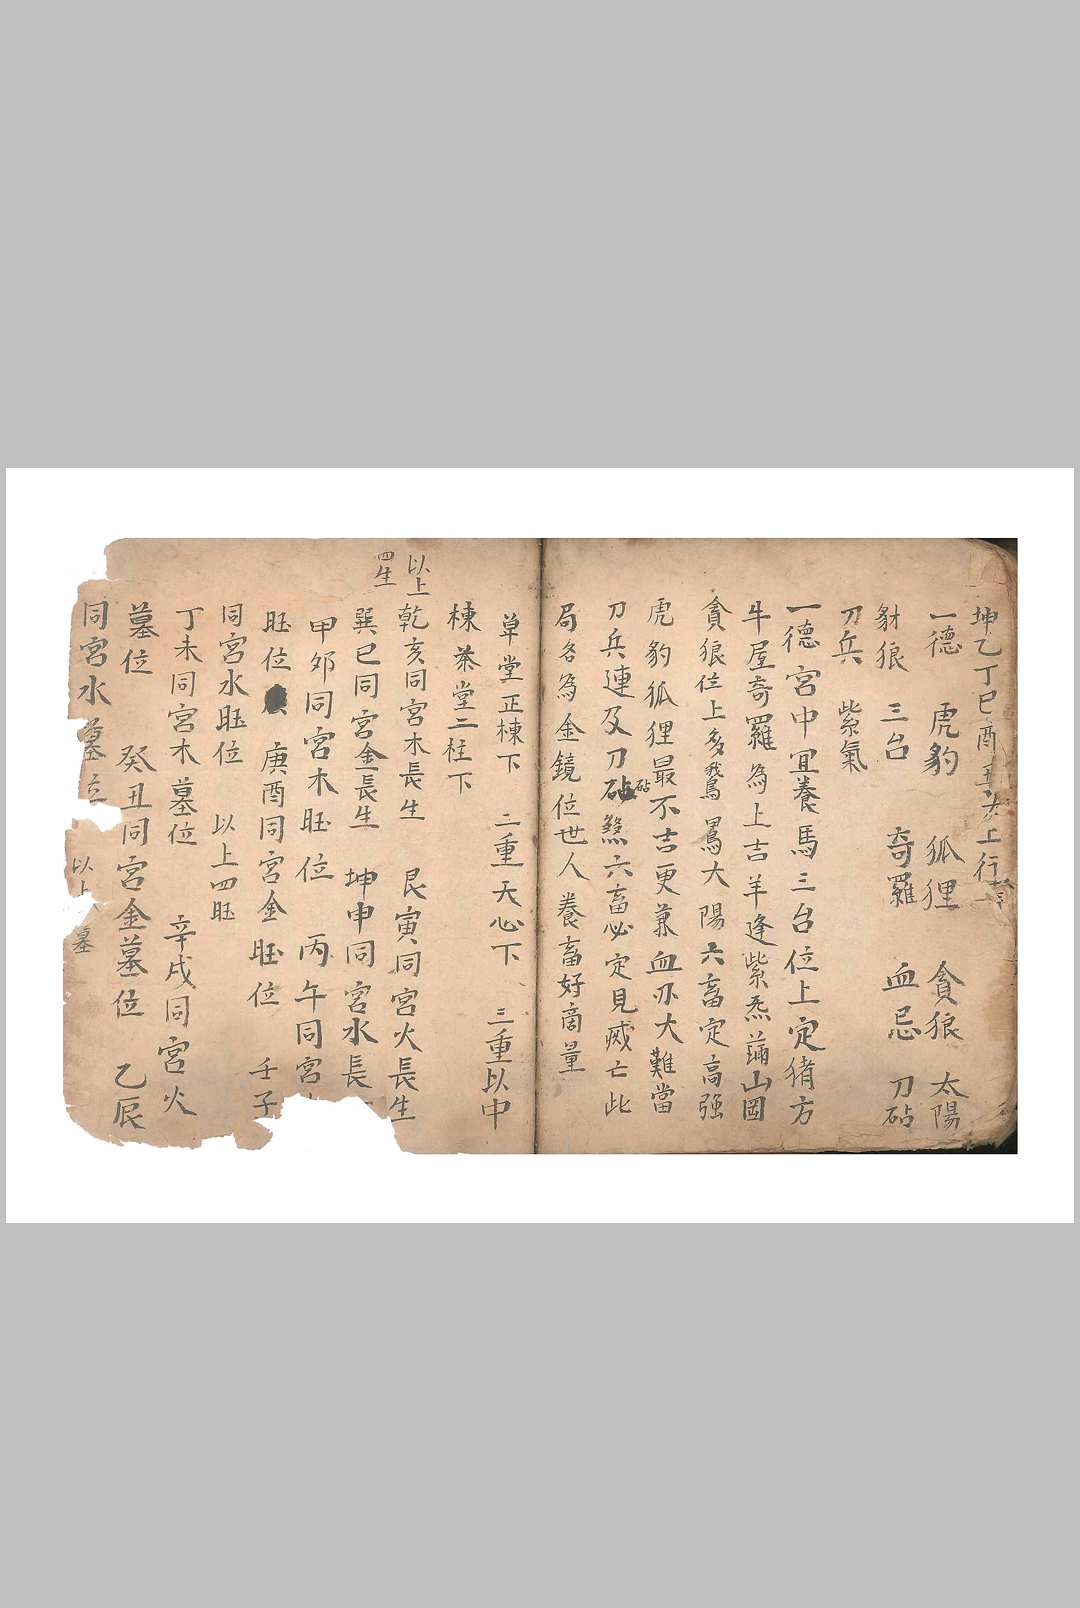 坤乙丁巳酉丑 上行
一德 虎豹 狐狸 貪狼 太陽
豺狼 三台 奇羅 血忌 刀砧
刀兵 紫氣
一德宮中宜養馬三台位上定猪方
牛屋奇羅為上吉羊逢紫炁滿山岡
貪狼位上多鵞鴨大陽六畜定高強
虎豹狐狸最不吉更兼血刃大難當
刀兵連及刀砧煞六畜必定見滅亡此
砧
局名為金鏡位世人養畜好商量
草堂正棟下 二重天心下 三重以中
棟 茶堂二柱下
以上
四生
乾亥同宮木長生 艮寅同宮火長生
巽巳同宮金長生 坤申同宮水長
甲卯同宮木旺位 丙午同宮
旺位 庚酉同宮金旺位 壬子
同宮水旺位 以上四旺
丁未同宮木墓位 辛戌同宮火
墓位 癸丑同宮金墓位 乙辰
同宮水墓位
以上 墓